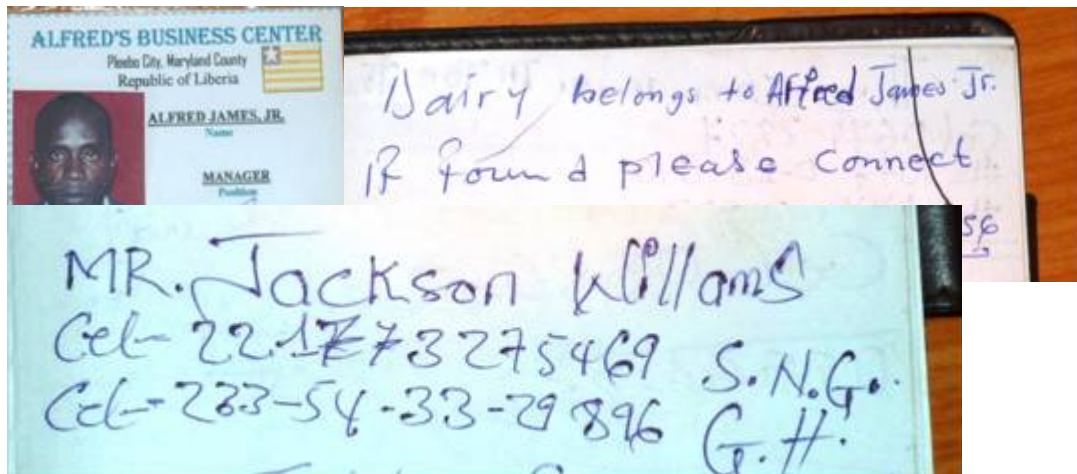 ALFRED'S BUSINESS CENTER
Pleebo City, Maryland County
Republic of Liberia
ALFRED JAMES, JR.
Name
MANAGER
Position
Dairy belongs to Alfred James Jr.
If found please connect
56
MR. Jackson Willams
Cel- 221773275469 S.N.G.
Cel- 233-54-33-29896 G.H.